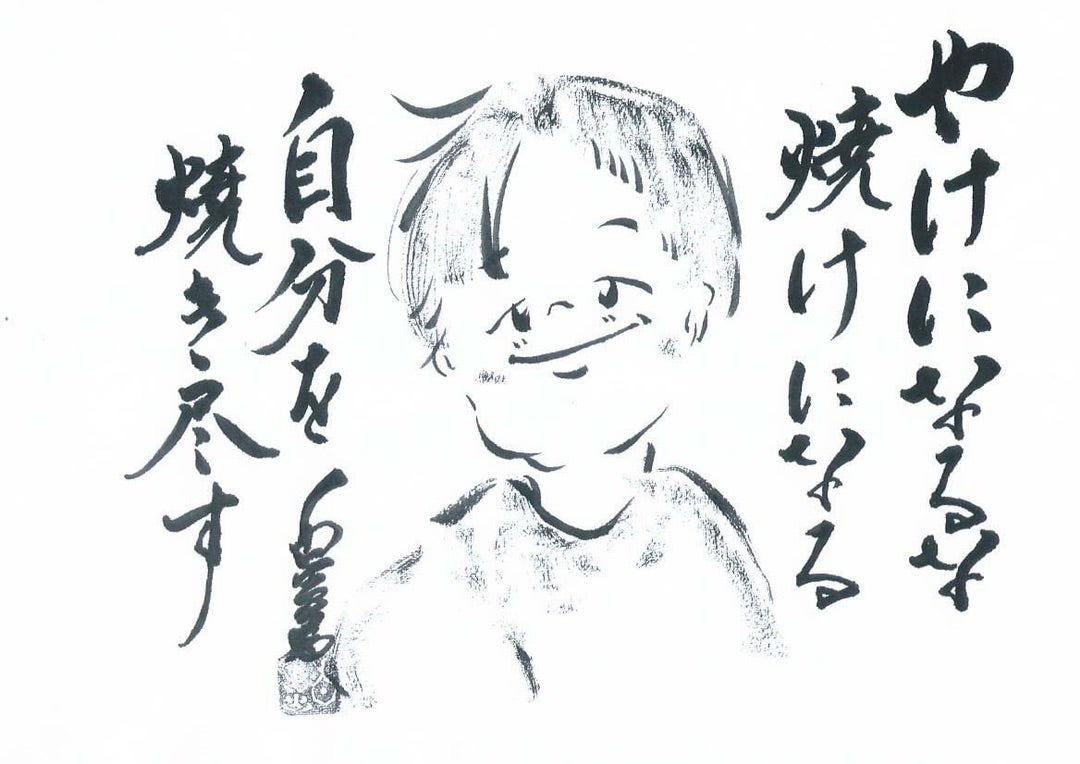 やけになるな
焼けになる
自分を
焼き尽す